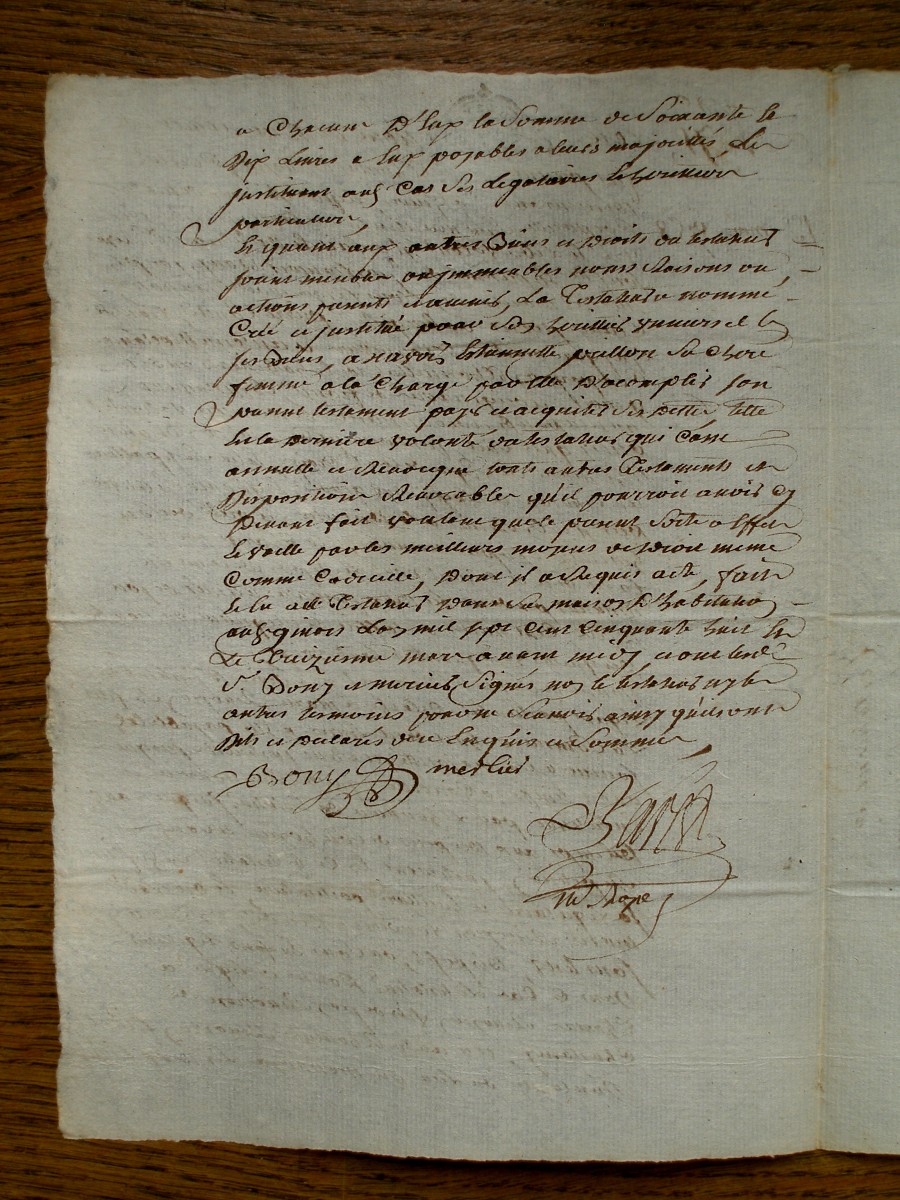 a Chacun D'Eux la Somme de Soixante le
Dix Livres a Eux payables a leurs majorités, Les
justituant aud Cas Ses Legataires heritiers
particuliers,
Et quant aux autres Biens et Droits du testateur
soint meubles ou jmmeubles noms Raisons ou
actions presents et avenir, Le Testateur a nommé
Créé et justitué pour Ses heritiers universel
femme a la Charge par Elle D'acomplir son
present testament payer et acquiter Ses Dettes telle
Est la Derniere volonté du testateur qui Casse
annulle et Revocque touts autres Testaments et
Dispositions Revocables qu'il pourroit avoir Cy
Devant fait voulant que le present Sorte a Effet
Et vaille par les meilleurs moyens de Droit meme
Comme Codicille, Dont jl a Requis acte, fait
Et lu au Testateur Dans Sa maison D'habitation
mil sept Cent Cinquante huit Et
Le Treizieme mars avant midy,
Sr. Bony et merlier Signés non le testateur ny les
autres temoins pour ne Scavoir ainsy qu'ils ont
Dits et Declarés de ce Enquis et Sommés,
Bony merlier